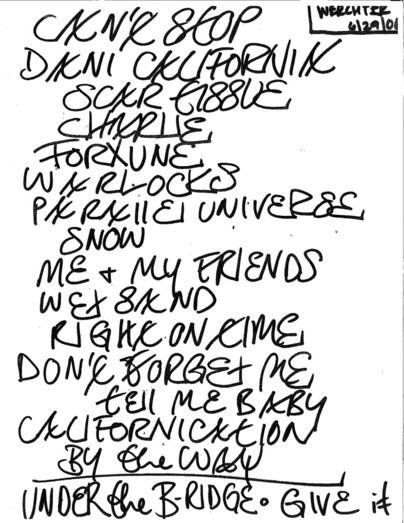 WERCHTER
6/29/06
CAN'T STOP
DANI CALIFORNIA
SCAR TISSUE
CHARLIE
FORTUNE
WARLOCKS
PARALLEL UNIVERSE
SNOW
ME + MY FRIENDS
WET SAND
RIGHT ON TIME
DON'T FORGET ME
tell ME BABY
CALIFORNICATION
BY the WAY
UNDER the B-RIDGE • GIVE it